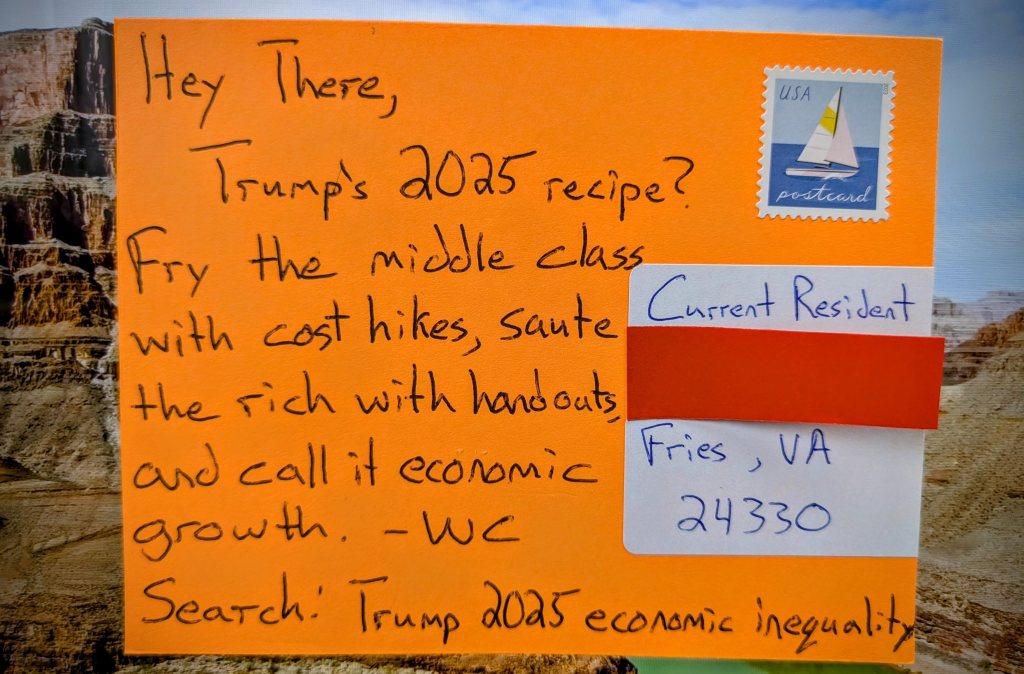 Hey There,
Trump's 2025 recipe?
Fry the middle class
with cost hikes, saute
the rich with handouts,
and call it economic
growth. - WC
Search: Trump 2025 economic inequality
USA
postcard
Current Resident
Fries, VA
24330